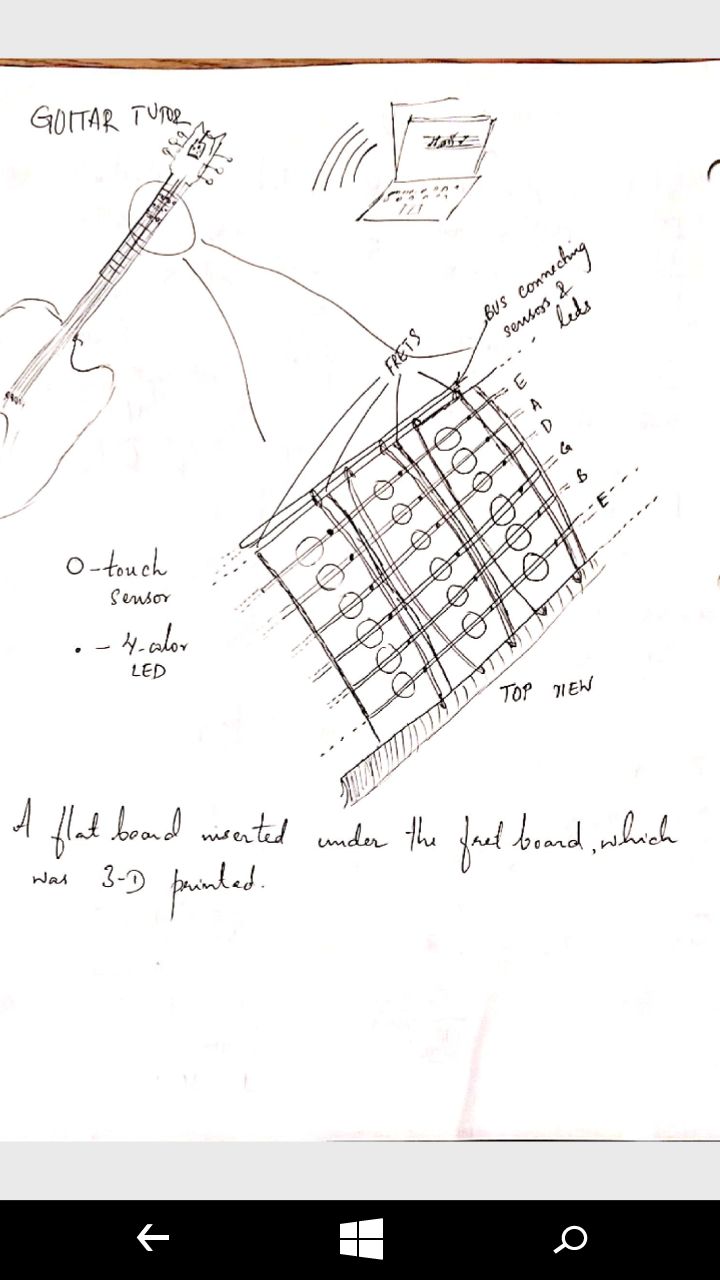 GUITAR TUTOR
BUS connecting
sensors &
leds
FRETS
E
A
D
G
B
E
O - touch
sensor
• - 4-color
LED
TOP VIEW
A flat board inserted under the fret board, which
was 3-D printed.